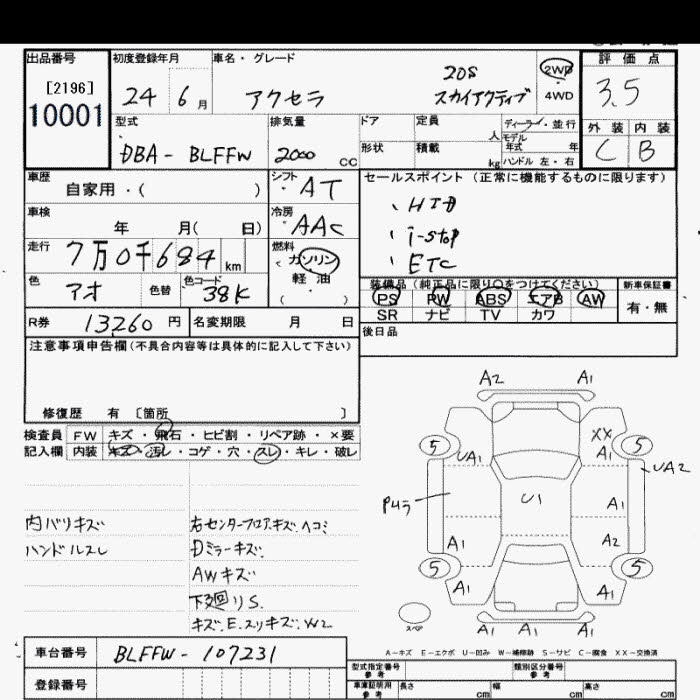 出品番号 初度登録年月 車名・グレード 評価点
[2196] 20S 2WD
10001 24 6月 アクセラ スカイアクティブ 4WD 3.5
型式 排気量 ドア 定員 人 ディーラー・並行 外装 内装
DBA-BLFFW 2000 cc 形状 積載 kg モデル年式 年 ハンドル 左・右 C B
車歴 自家用・( ) シフト AT セールスポイント (正常に機能するものに限ります)
車検 年 月( 日) 冷房 AAC 、HID
、i-stop
走行 7万0千684km 燃料 ガソリン 、ETC
軽油
( )
色 アオ 色替 色コード 38K 装備品(純正品に限り○をつけてください) 新車保証書
PS PW ABS エアB AW 有・無
SR ナビ TV カワ
R券 13260円 名変期限 月 日 後日品
注意事項申告欄(不具合内容等は具体的に記入して下さい)
修復歴 有 〔箇所 〕
検査員 FW キズ・飛石・ヒビ割・リペア跡・×要
記入欄 内装 キズ・汚レ・コゲ・穴・スレ・キレ・破レ
内バリキズ 右センターフロアキズ、ヘコミ
ハンドルスレ Dミラーキズ、
AWキズ
下廻リS、
キズ、E、スリキズ、W2
A2 A1
XX
5 A1 5
UA1 UA2
U1
A1
A1 A2
5 5
A1 A1
スペア
A1 A1 A1
A-キズ E-エクボ U-凹み W-補修跡 S-サビ C-腐食 XX-交換済
車台番号 BLFFW-107231
型式指定番号 参考 類別区分番号 参考
登録番号 車庫証明用 参考 長さ cm 幅 cm 高さ cm